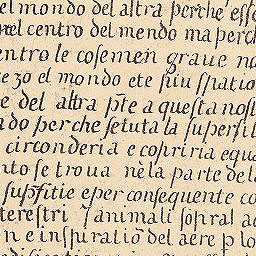 el mondo del altra perche esse
nel centro del mondo ma perch
entro le cose men graue no
te 30 el mondo ete piu spatio
e del altra pte a questa nost
do perche se tuta la superfit
circonderia e copriria equa
nto se troua nela parte de la
supfitie e per consequente co
terestri animali sopral ac
n e inspuratiõ del aere p lo